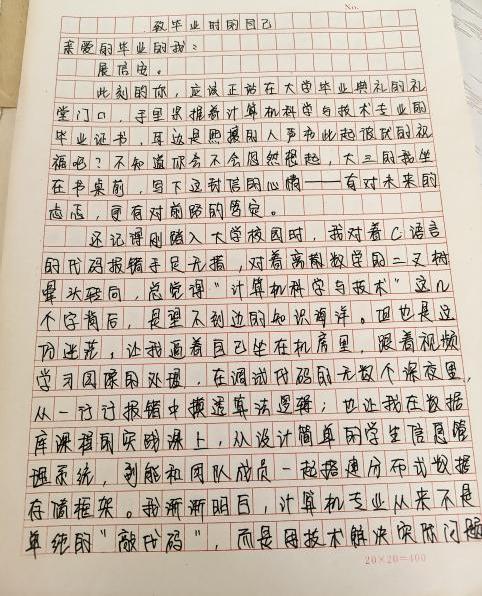 No.
致毕业时的自己
亲爱的毕业的我：
展信安。
此刻的你，应该正站在大学毕业典礼的礼
堂门口，手里紧握着计算机科学与技术专业的
毕业证书，耳边是熙攘的人声和此起彼伏的祝
福吧？不知道你会不会忽然想起，大三的我坐
在书桌前，写下这封信的心情——有对未来的
忐忑，更有对前路的笃定。
还记得刚踏入大学校园时，我对着C语言
的代码报错手足无措，对着离散数学的二叉树
晕头转向，总觉得“计算机科学与技术”这几
个字背后，是望不到边的知识海洋。但也是这
份迷茫，让我逼着自己坐在机房里，跟着视频
学习图像的处理，在调试代码的无数个深夜里，
从一行行报错中摸透算法逻辑；也让我在数据
库课程的实践课上，从设计简单的学生信息管
理系统，到能和团队成员一起搭建分布式数据
存储框架。我渐渐明白，计算机专业从来不是
单纯的“敲代码”，而是用技术解决实际问题
20×20=400